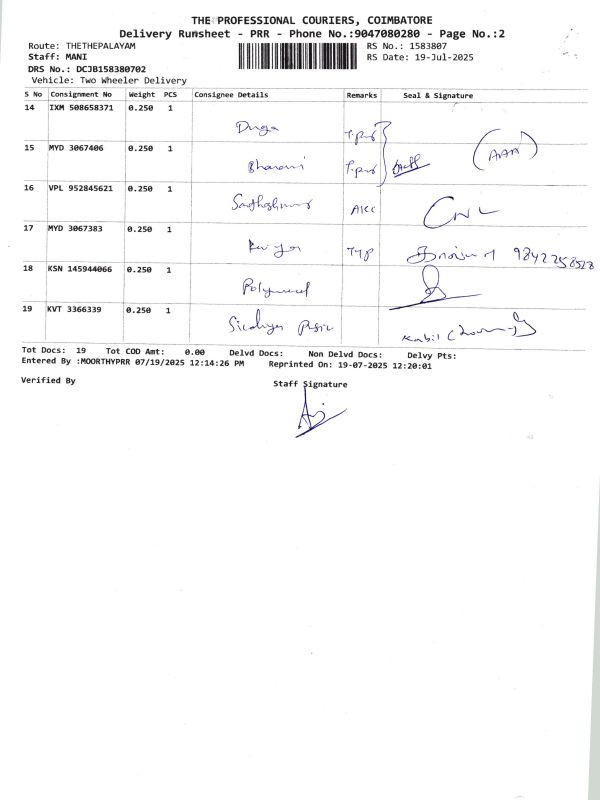 THE PROFESSIONAL COURIERS, COIMBATORE
Delivery Runsheet - PRR - Phone No.:9047080280 - Page No.:2
Route: THETHEPALAYAM RS No.: 1583807
Staff: MANI RS Date: 19-Jul-2025
DRS No.: DCJB158380702
Vehicle: Two Wheeler Delivery
S No Consignment No Weight PCS Consignee Details Remarks Seal & Signature
14 IXM 508658371 0.250 1
Durga
15 MYD 3067406 0.250 1
Bharani
16 VPL 952845621 0.250 1
AKC CNL
17 MYD 3067383 0.250 1
TYP 9842258528
18 KSN 145944066 0.250 1
19 KVT 3366339 0.250 1
Kabil
Tot Docs: 19 Tot COD Amt: 0.00 Delvd Docs: Non Delvd Docs: Delvy Pts:
Entered By :MOORTHYPRR 07/19/2025 12:14:26 PM Reprinted On: 19-07-2025 12:20:01
Verified By Staff Signature